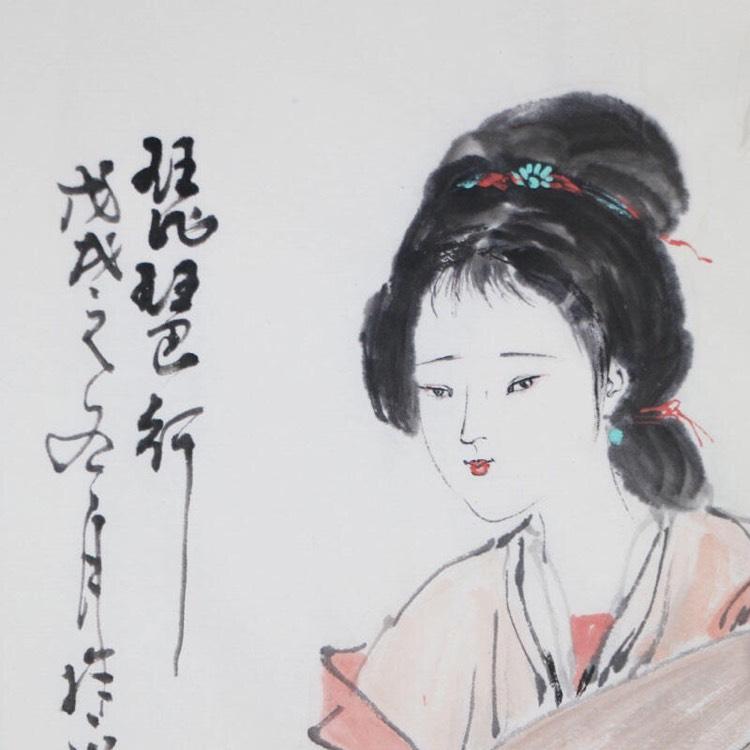 琵琶行
戊戌之冬月於